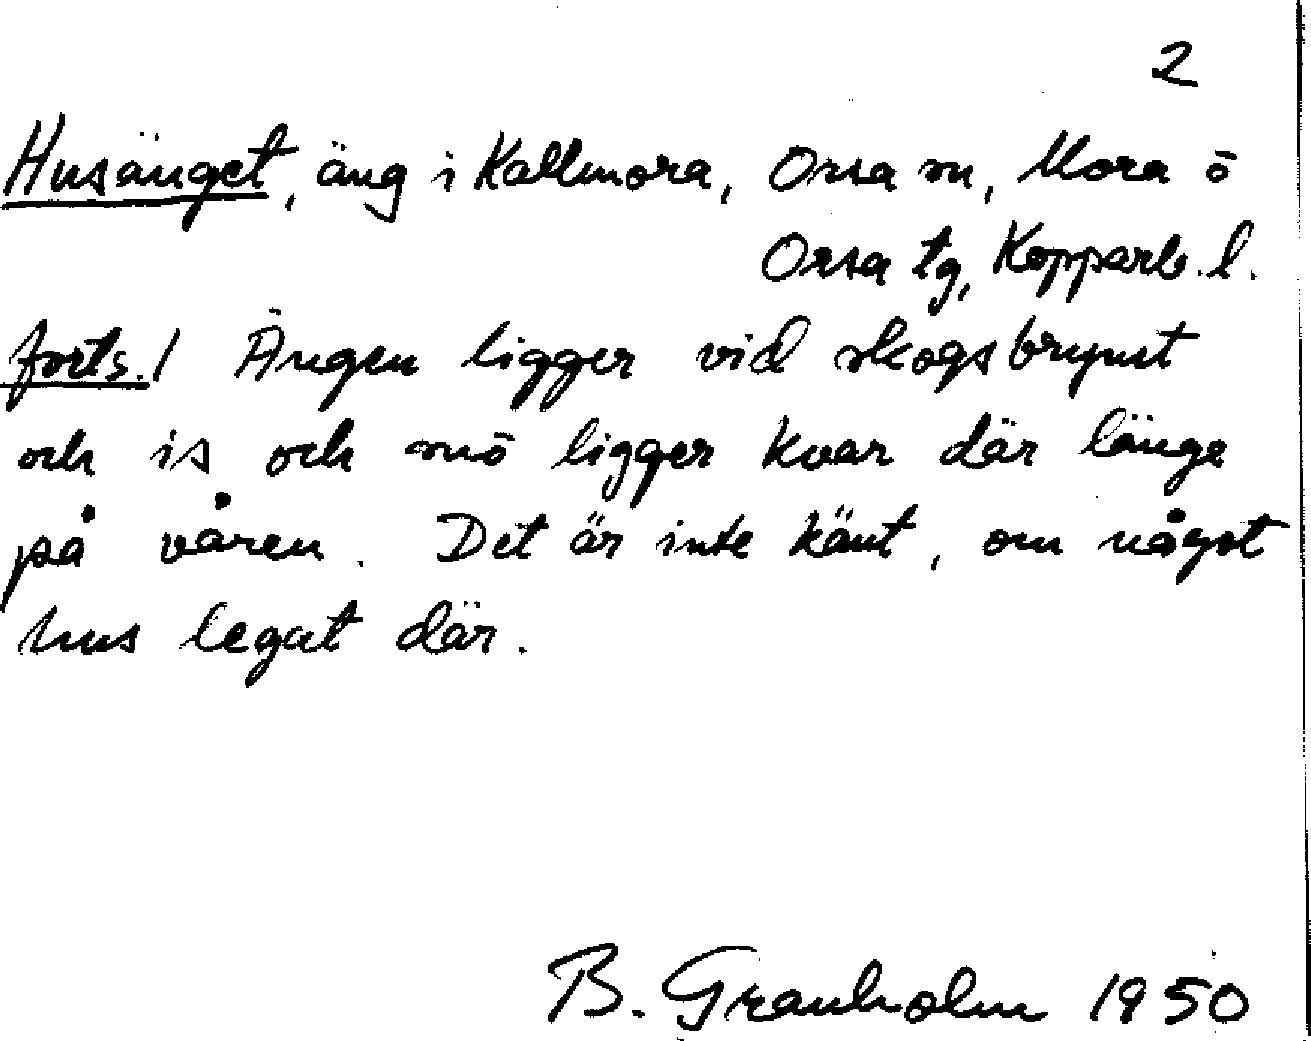 2
Husänget, äng i Kallmora, Orsa sn, Mora ö
Orsa tg, Kopparb. l.
forts./ Ängen ligger vid skogsbrynet
och is och snö ligger kvar där länge
på våren. Det är inte känt, om något
hus legat där.
B. Granholm 1950